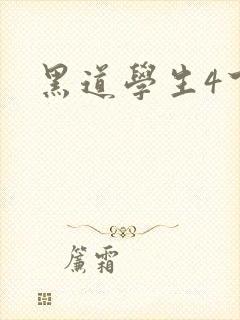 黑道學生4
簾霜